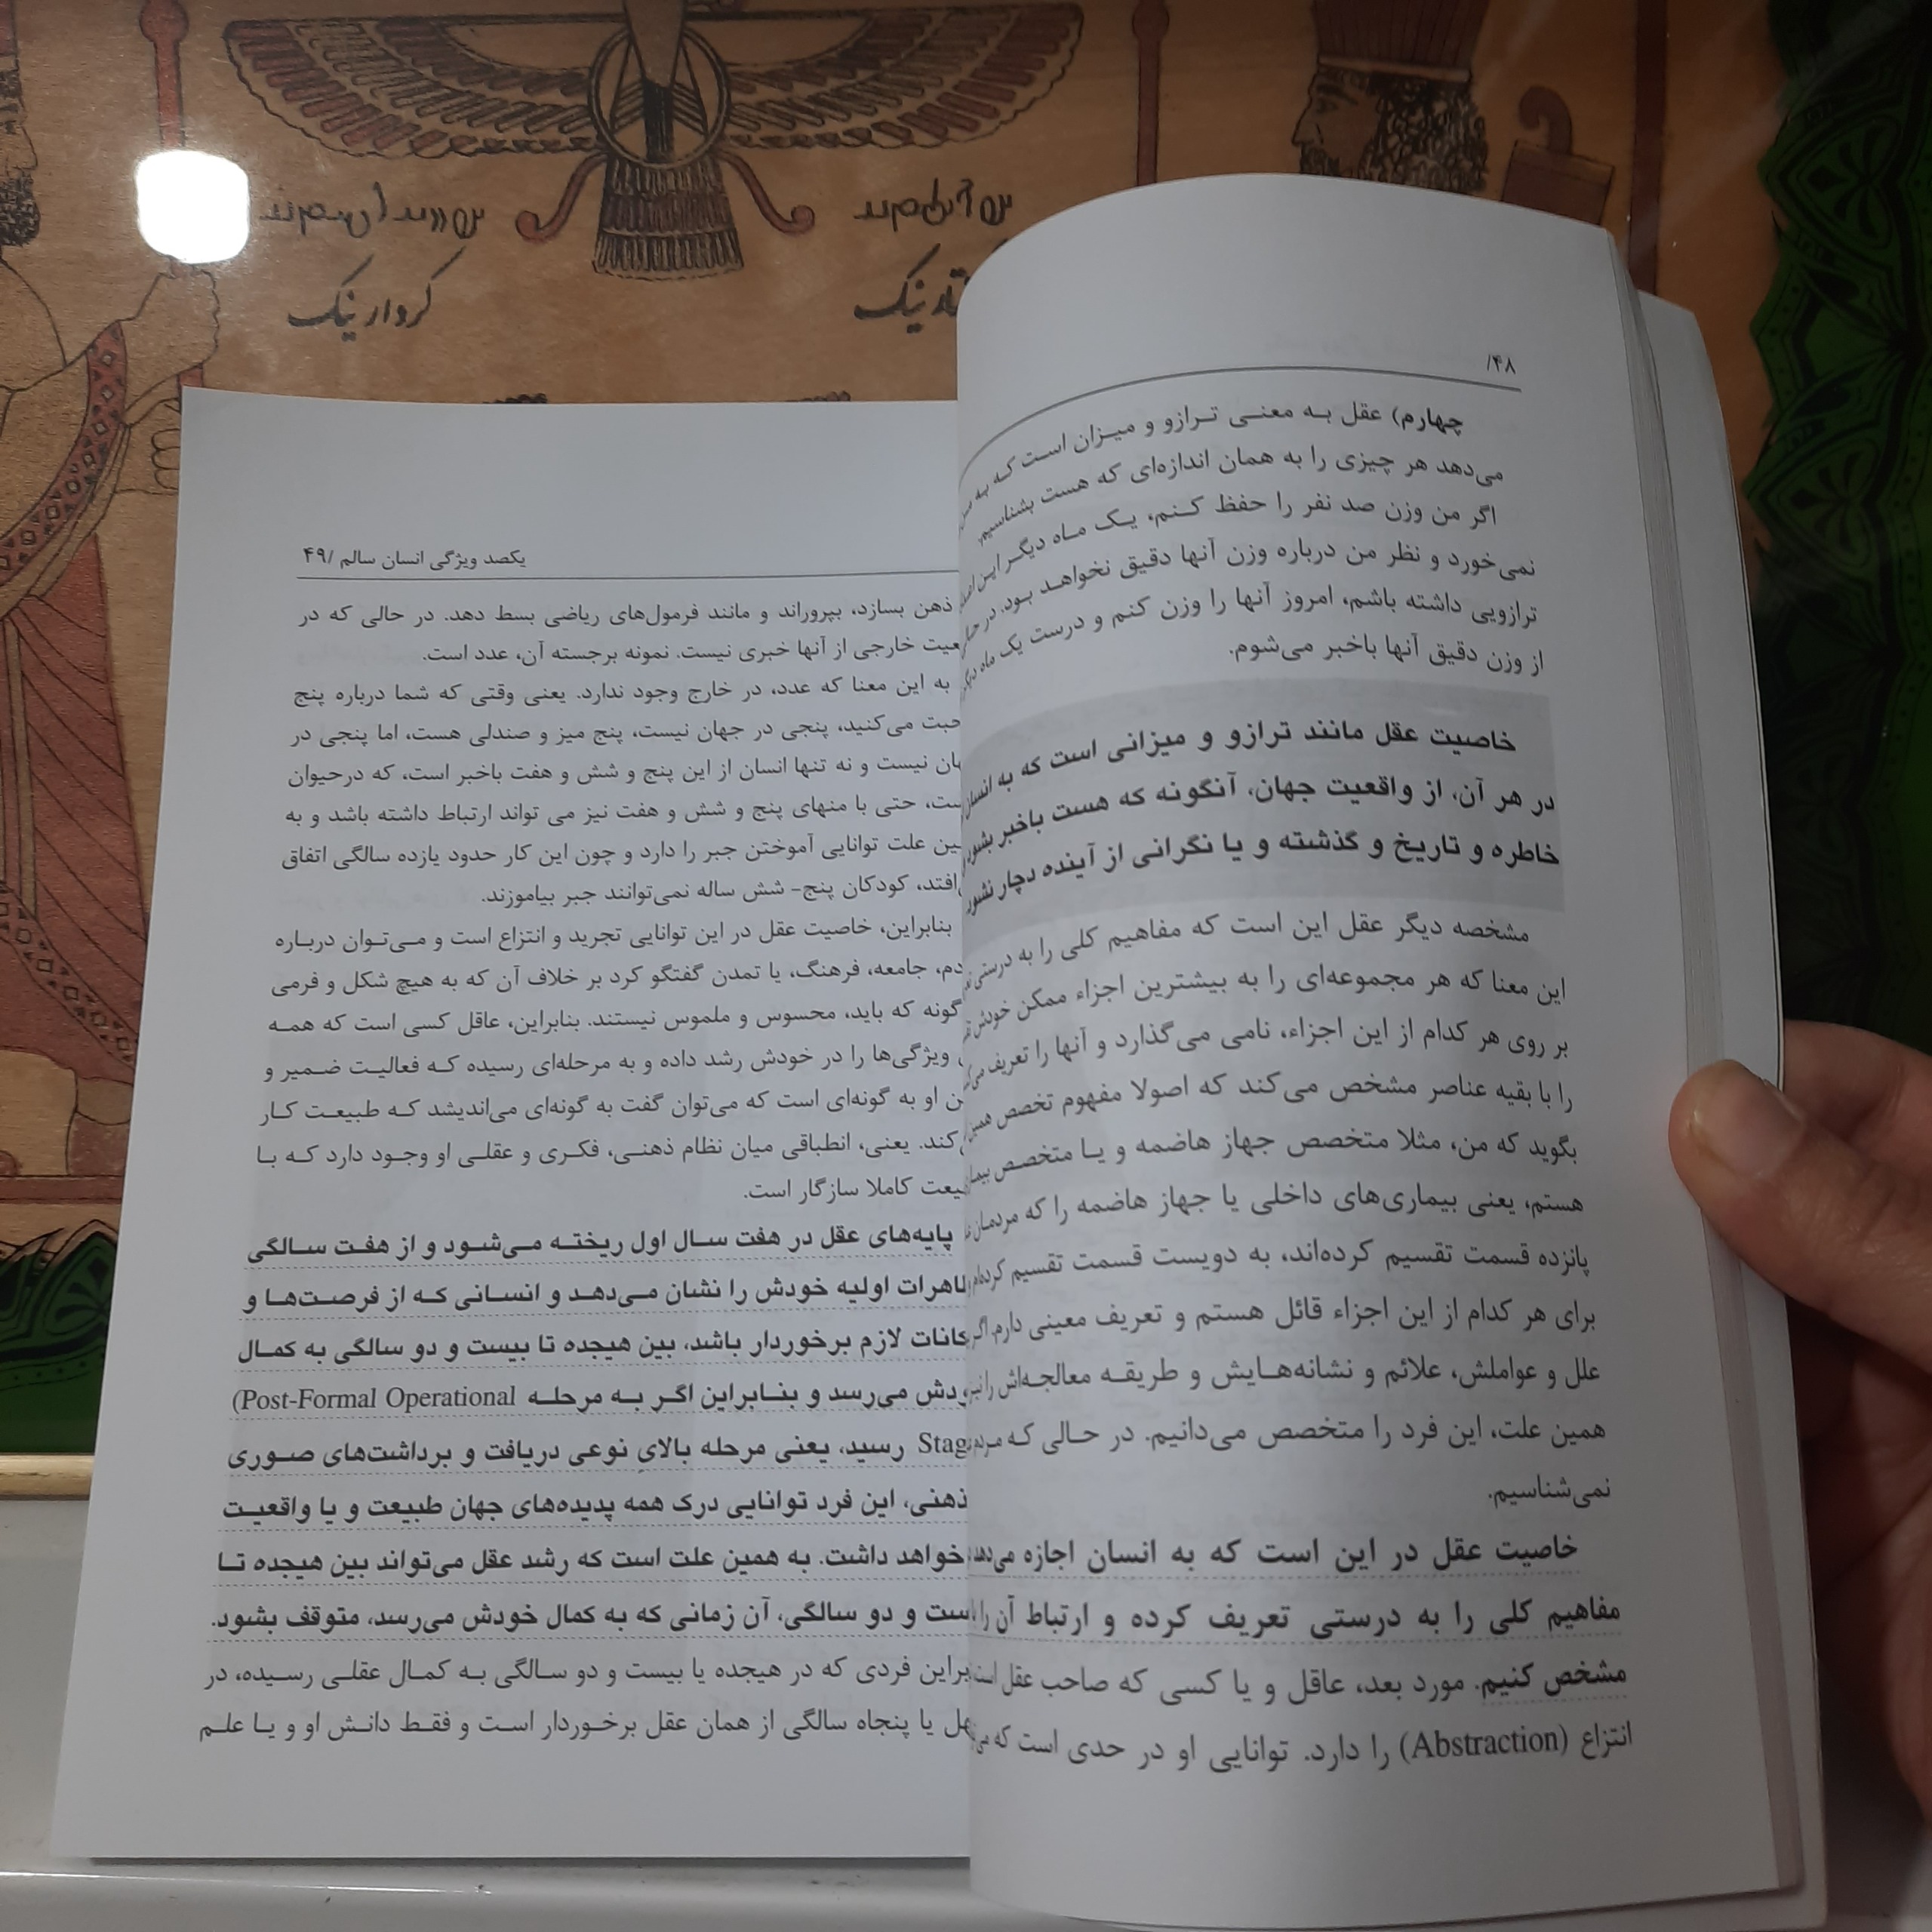 کردار نیک
نیک
/۴۸
چهارم) عقل به معنی ترازو و میزان است که به
می‌دهد هر چیزی را به همان اندازه‌ای که هست بشناسیم.
اگر من وزن صد نفر را حفظ کنم، یک ماه دیگر این
نمی‌خورد و نظر من درباره وزن آنها دقیق نخواهد بود. در
ترازویی داشته باشم، امروز آنها را وزن کنم و درست یک ماه
از وزن دقیق آنها باخبر می‌شوم.
خاصیت عقل مانند ترازو و میزانی است که به انسان
در هر آن، از واقعیت جهان، آنگونه که هست باخبر بشود
خاطره و تاریخ و گذشته و یا نگرانی از آینده دچار نشود
مشخصه دیگر عقل این است که مفاهیم کلی را به درستی
این معنا که هر مجموعه‌ای را به بیشترین اجزاء ممکن خودش
بر روی هر کدام از این اجزاء، نامی می‌گذارد و آنها را تعریف
را با بقیه عناصر مشخص می‌کند که اصولا مفهوم تخصص همین
بگوید که من، مثلا متخصص جهاز هاضمه و یا متخصص
هستم، یعنی بیماری‌های داخلی یا جهاز هاضمه را که
پانزده قسمت تقسیم کرده‌اند، به دویست قسمت تقسیم کرده‌ام
برای هر کدام از این اجزاء قائل هستم و تعریف معینی دارم.
علل و عواملش، علائم و نشانه‌هایش و طریقه معالجه‌اش را
همین علت، این فرد را متخصص می‌دانیم. در حالی که
نمی‌شناسیم.
خاصیت عقل در این است که به انسان اجازه می‌دهد
مفاهیم کلی را به درستی تعریف کرده و ارتباط آن را
مشخص کنیم. مورد بعد، عاقل و یا کسی که صاحب عقل است
انتزاع (Abstraction) را دارد. توانایی او در حدی است که
یکصد ویژگی انسان سالم /۴۹
ذهن بسازد، بپروراند و مانند فرمول‌های ریاضی بسط دهد. در حالی که در
خارجی از آنها خبری نیست. نمونه برجسته آن، عدد است.
به این معنا که عدد، در خارج وجود ندارد. یعنی وقتی که شما درباره پنج
می‌کنید، پنجی در جهان نیست، پنج میز و صندلی هست، اما پنجی در
نیست و نه تنها انسان از این پنج و شش و هفت باخبر است، که درحیوان
حتی با منهای پنج و شش و هفت نیز می تواند ارتباط داشته باشد و به
علت توانایی آموختن جبر را دارد و چون این کار حدود یازده سالگی اتفاق
کودکان پنج- شش ساله نمی‌توانند جبر بیاموزند.
بنابراین، خاصیت عقل در این توانایی تجرید و انتزاع است و می‌توان درباره
جامعه، فرهنگ، یا تمدن گفتگو کرد بر خلاف آن که به هیچ شکل و فرمی
گونه که باید، محسوس و ملموس نیستند. بنابراین، عاقل کسی است که همه
ویژگی‌ها را در خودش رشد داده و به مرحله‌ای رسیده که فعالیت ضمیر و
او به گونه‌ای است که می‌توان گفت به گونه‌ای می‌اندیشد که طبیعت کار
کند. یعنی، انطباقی میان نظام ذهنی، فکری و عقلی او وجود دارد که با
کاملا سازگار است.
پایه‌های عقل در هفت سال اول ریخته می‌شود و از هفت سالگی
اولیه خودش را نشان می‌دهد و انسانی که از فرصت‌ها و
لازم برخوردار باشد، بین هیجده تا بیست و دو سالگی به کمال
می‌رسد و بنابراین اگر به مرحله (Post-Formal Operational
رسید، یعنی مرحله بالایِ نوعی دریافت و برداشت‌های صوری
ذهنی، این فرد توانایی درک همه پدیده‌های جهان طبیعت و یا واقعیت
خواهد داشت. به همین علت است که رشد عقل می‌تواند بین هیجده تا
و دو سالگی، آن زمانی که به کمال خودش می‌رسد، متوقف بشود.
فردی که در هیجده یا بیست و دو سالگی به کمال عقلی رسیده، در
یا پنجاه سالگی از همان عقل برخوردار است و فقط دانش او و یا علم